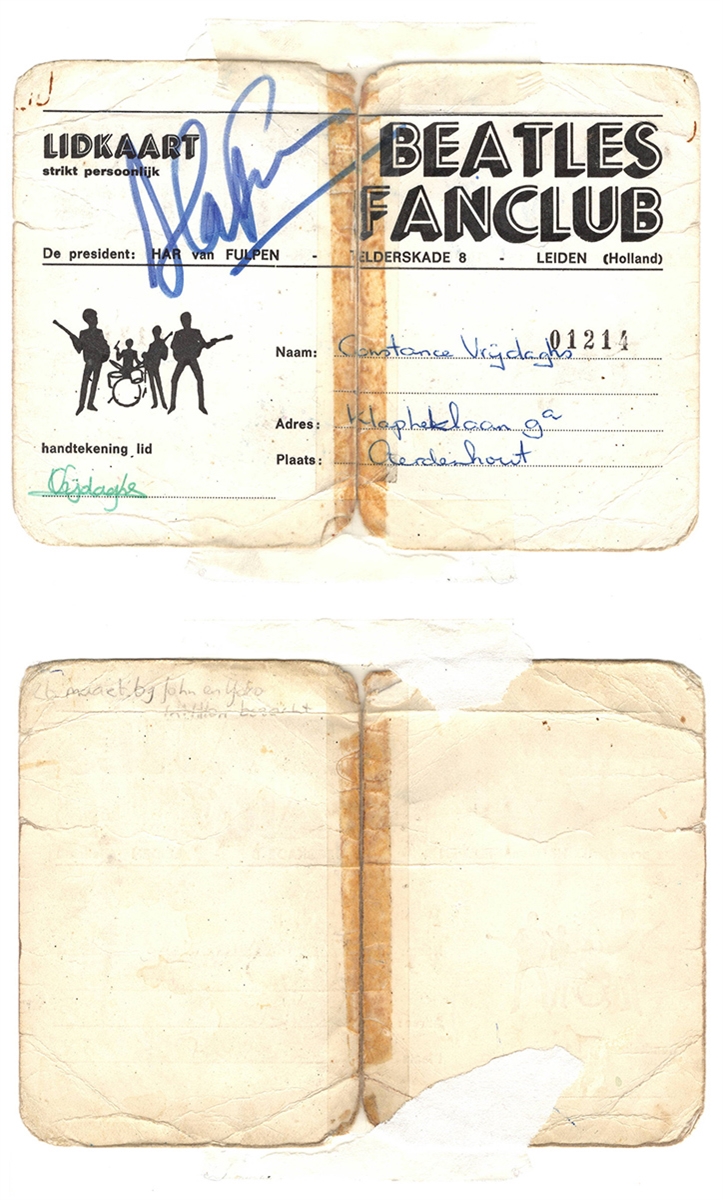 LIDKAART
strikt persoonlijk
BEATLES
FANCLUB
De president: HAR van FULPEN - ELDERSKADE 8 - LEIDEN (Holland)
01214
Naam: Constance Vrijdaghs
Adres: Klapheklaan 9a
Plaats: Aerdenhout
handtekening lid
Vrijdaghs
26 maart bij John en Yoko
in Hilton